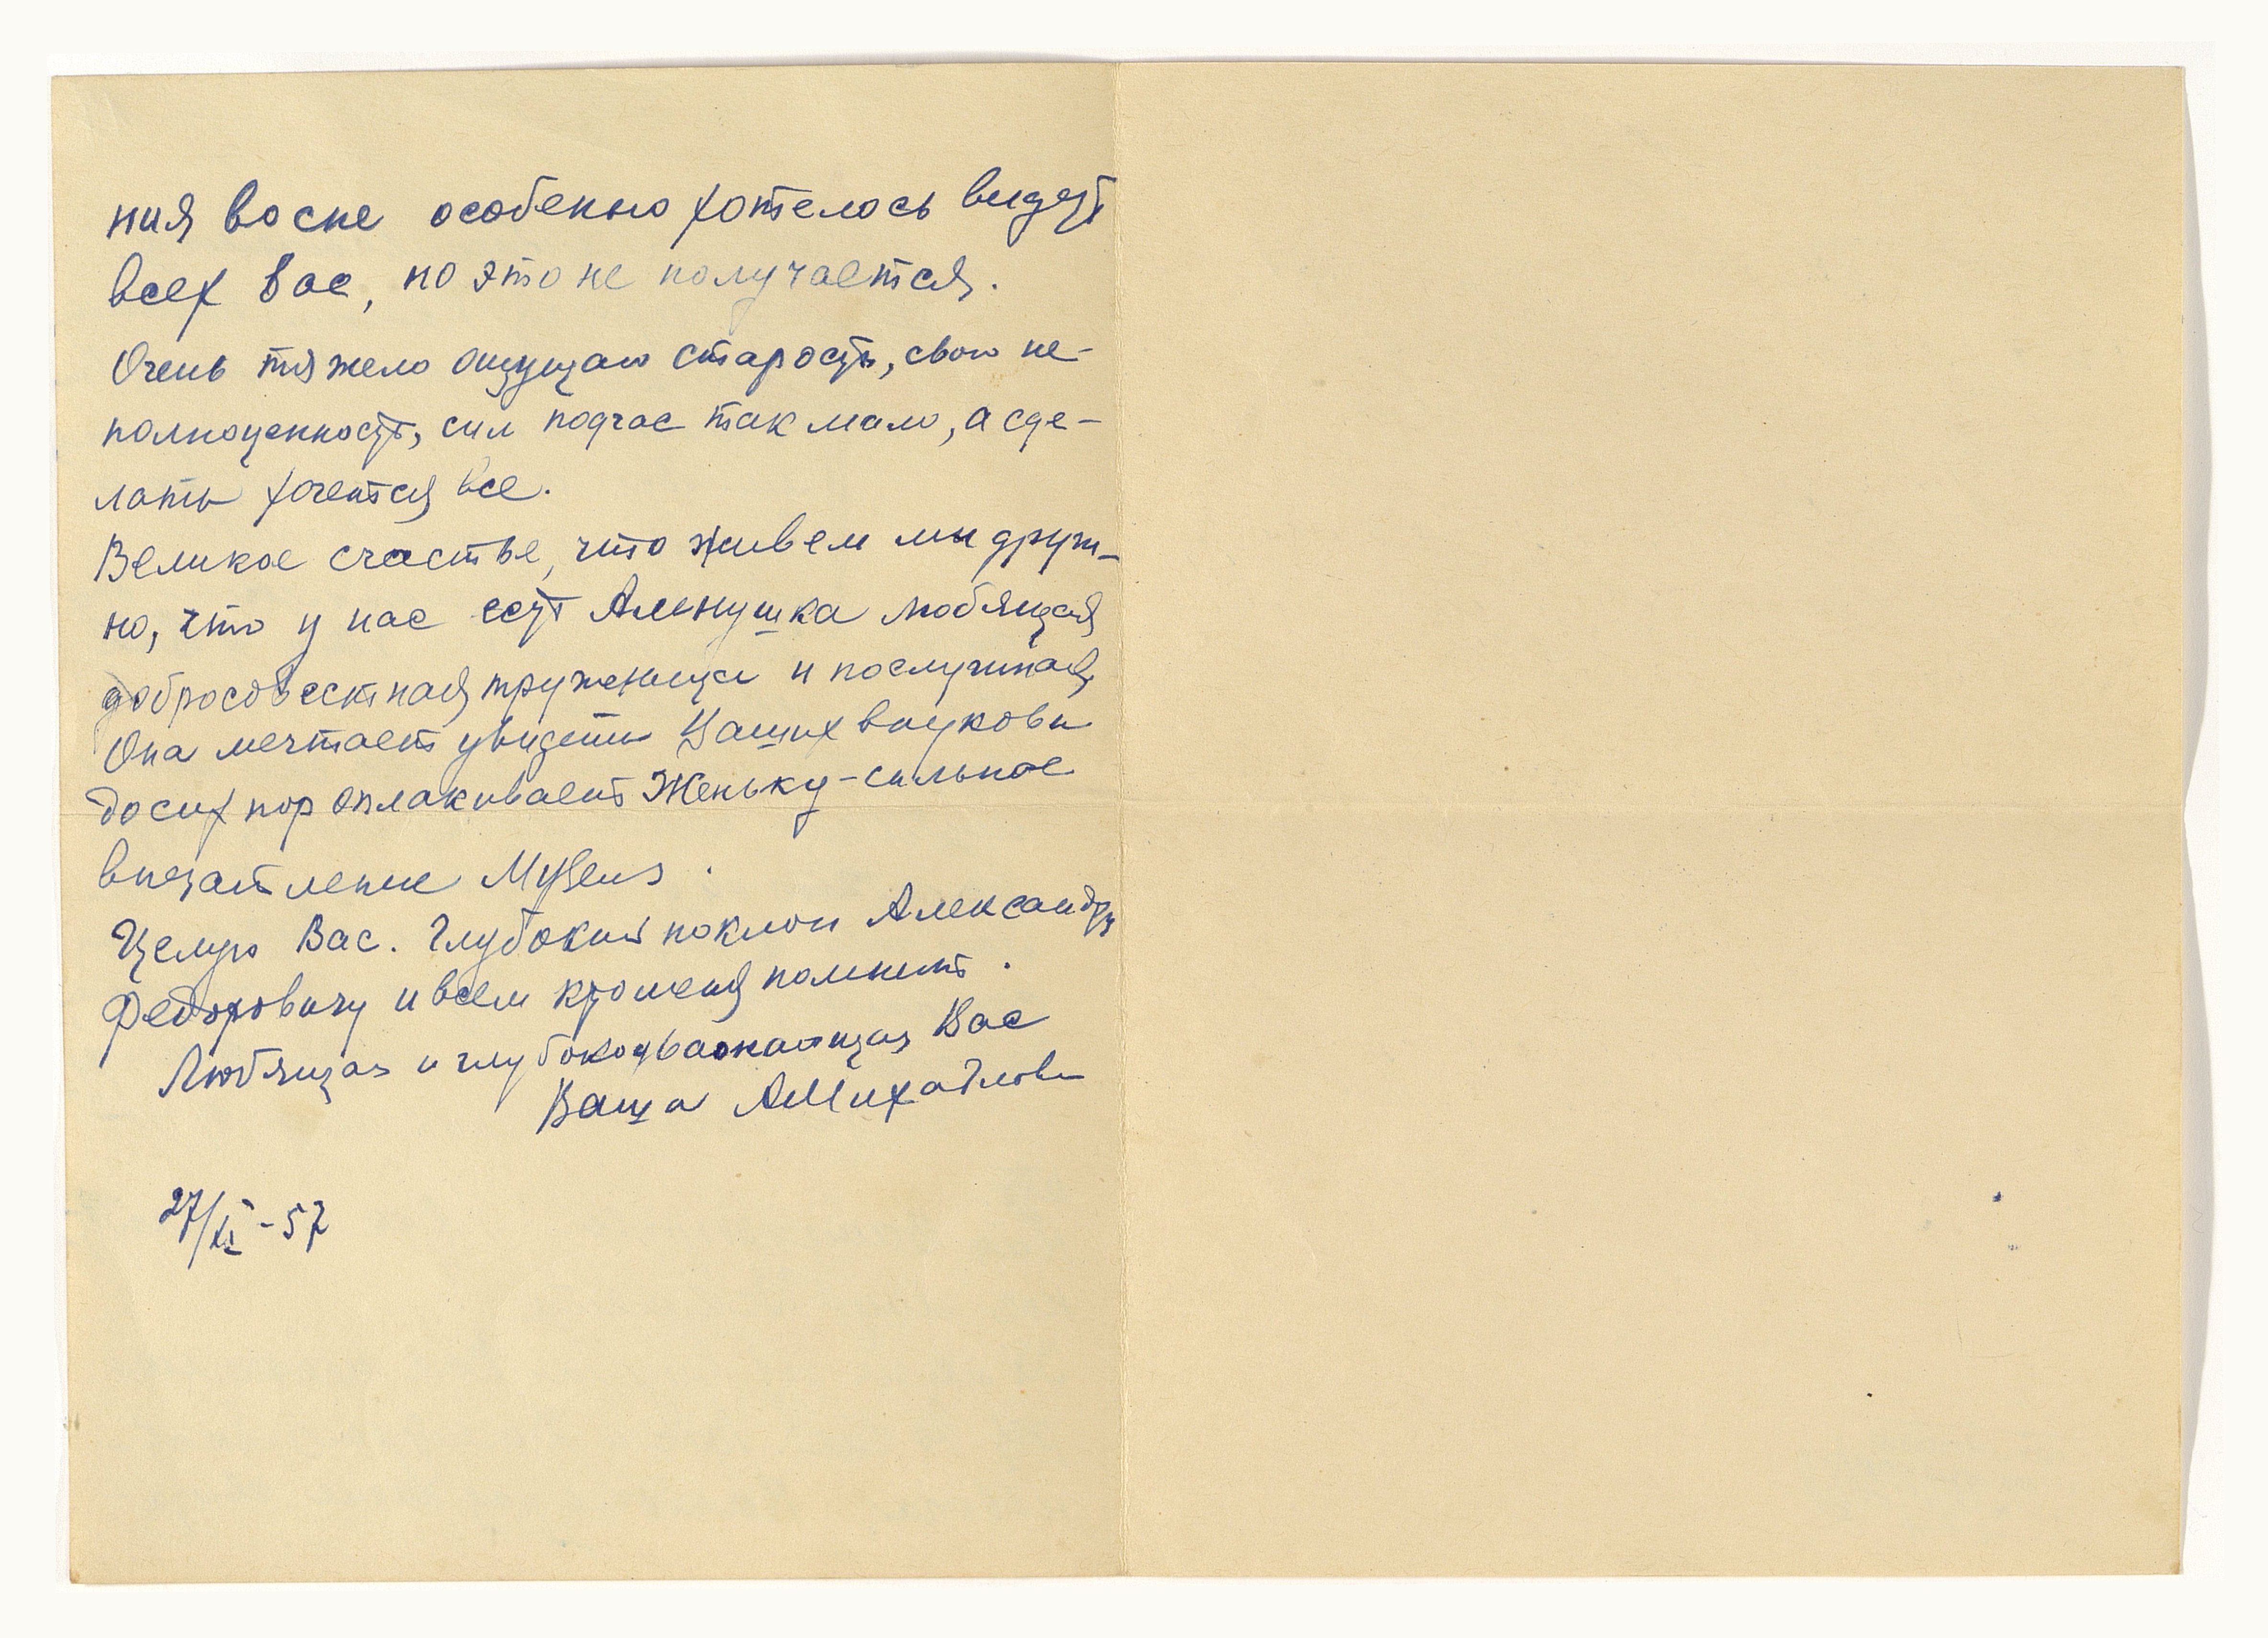 ния во сне особенно хотелось видеть
всех Вас, но это не получается.
Очень тяжело ощущаю старость, свою не-
полноценность, сил подчас так мало, а сде-
лать хочется все.
Великое счастье, что живем мы друж-
но, что у нас есть Аленушка любящая
добросовестная труженица и послушная
Она мечтает увидеть Ваших внуков и
до сих пор оплакивает Женьку - сильное
впечатление Музея.
Целую Вас. Глубокий поклон Александру
Федоровичу и всем кто меня помнит.
Любящая и глубокоуважающая Вас
Ваша АМихайлова
27/XI - 57